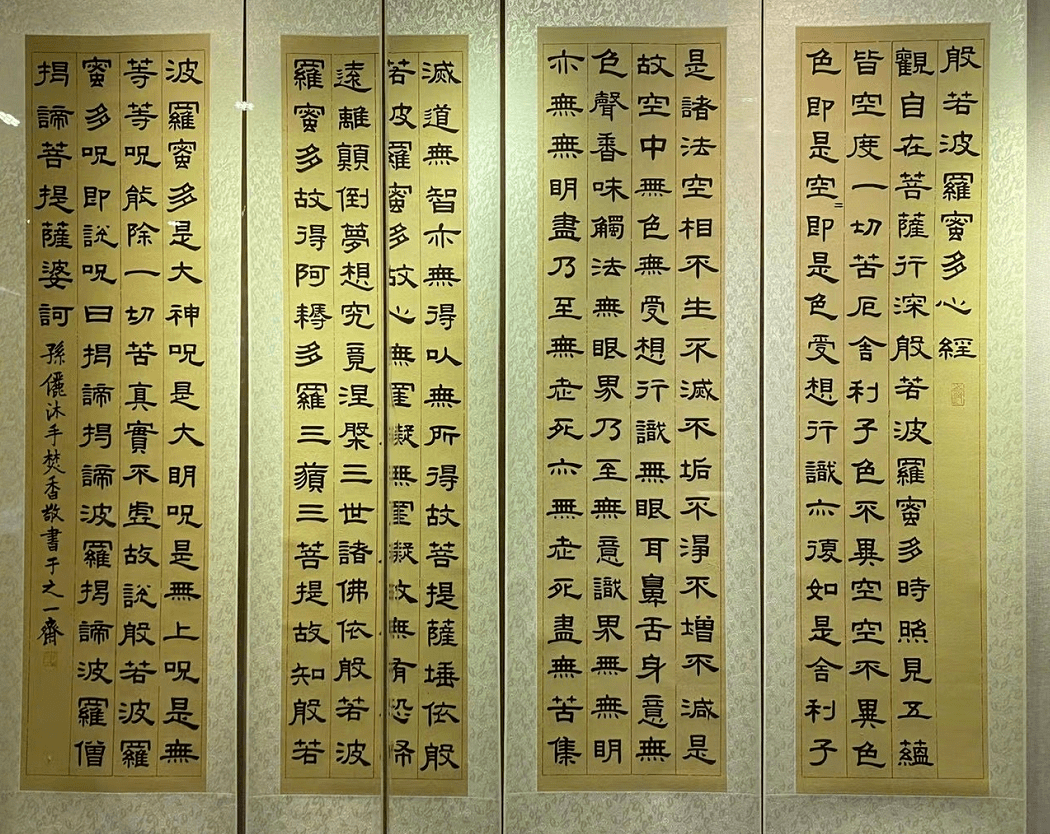 般若波羅蜜多心經
觀自在菩薩行深般若波羅蜜多時照見五蘊
皆空度一切苦厄舍利子色不異空空不異色
色即是空=即是色受想行識亦復如是舍利子
是諸法空相不生不滅不垢不淨不增不減是
故空中無色無受想行識無眼耳鼻舌身意無
色聲香味觸法無眼界乃至無意識界無無明
亦無無明盡乃至無老死亦無老死盡無苦集
滅道無智亦無得以無所得故菩提薩埵依般
若波羅蜜多故心無罣礙無罣礙故無有恐怖
遠離顛倒夢想究竟涅槃三世諸佛依般若波
羅蜜多故得阿耨多羅三藐三菩提故知般若
波羅蜜多是大神呪是大明呪是無上呪是無
等等呪能除一切苦真實不虛故說般若波羅
蜜多呪即說呪曰揭諦揭諦波羅揭諦波羅僧
揭諦菩提薩婆訶 孫儷沐手焚香敬書于之一齋